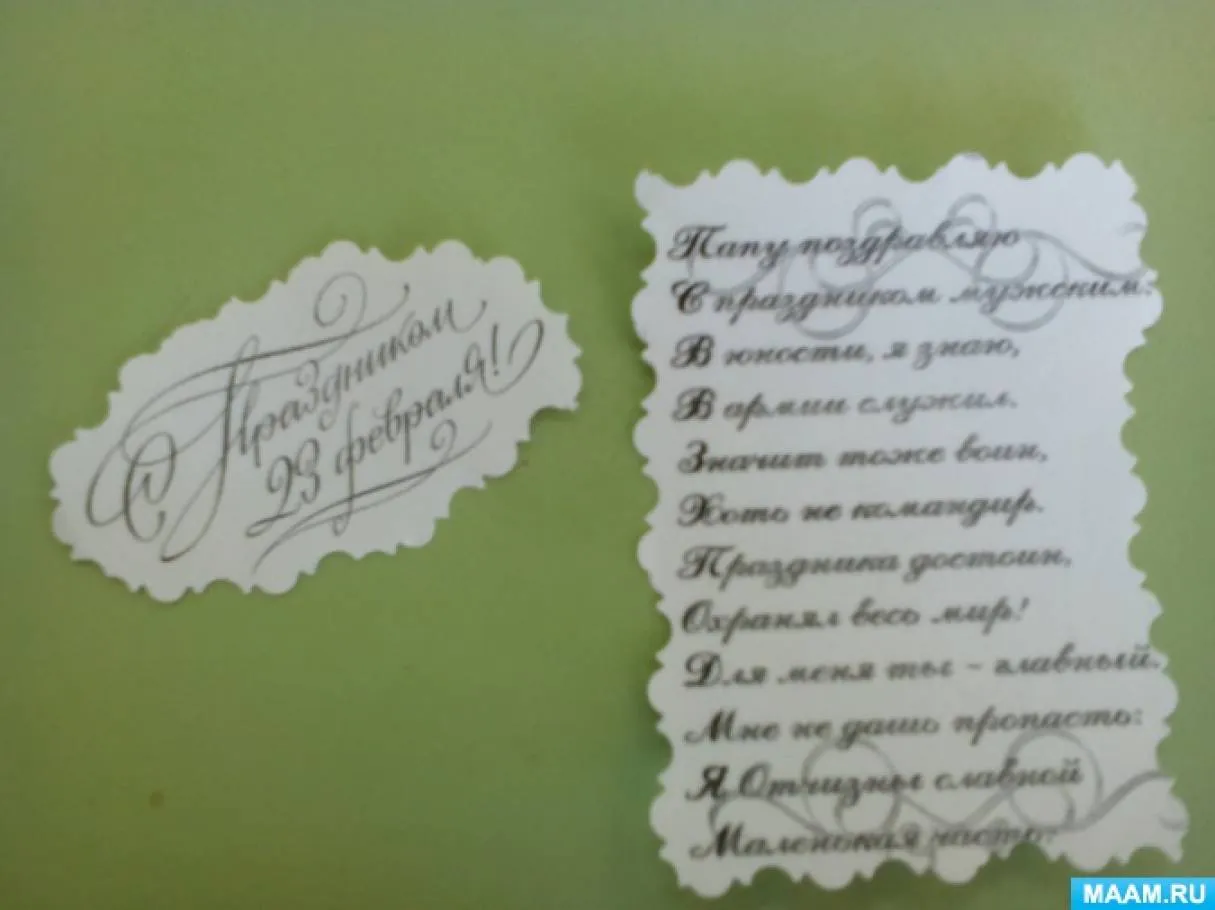 С Праздником
23 февраля!
Папу поздравляю
С праздником мужским:
В юности, я знаю,
В армии служил.
Значит тоже воин,
Хоть не командир.
Праздника достоин,
Охранял весь мир!
Для меня ты - главный.
Мне не дашь пропасть:
Я Отчизны славной
Маленькая часть.
MAAM.RU